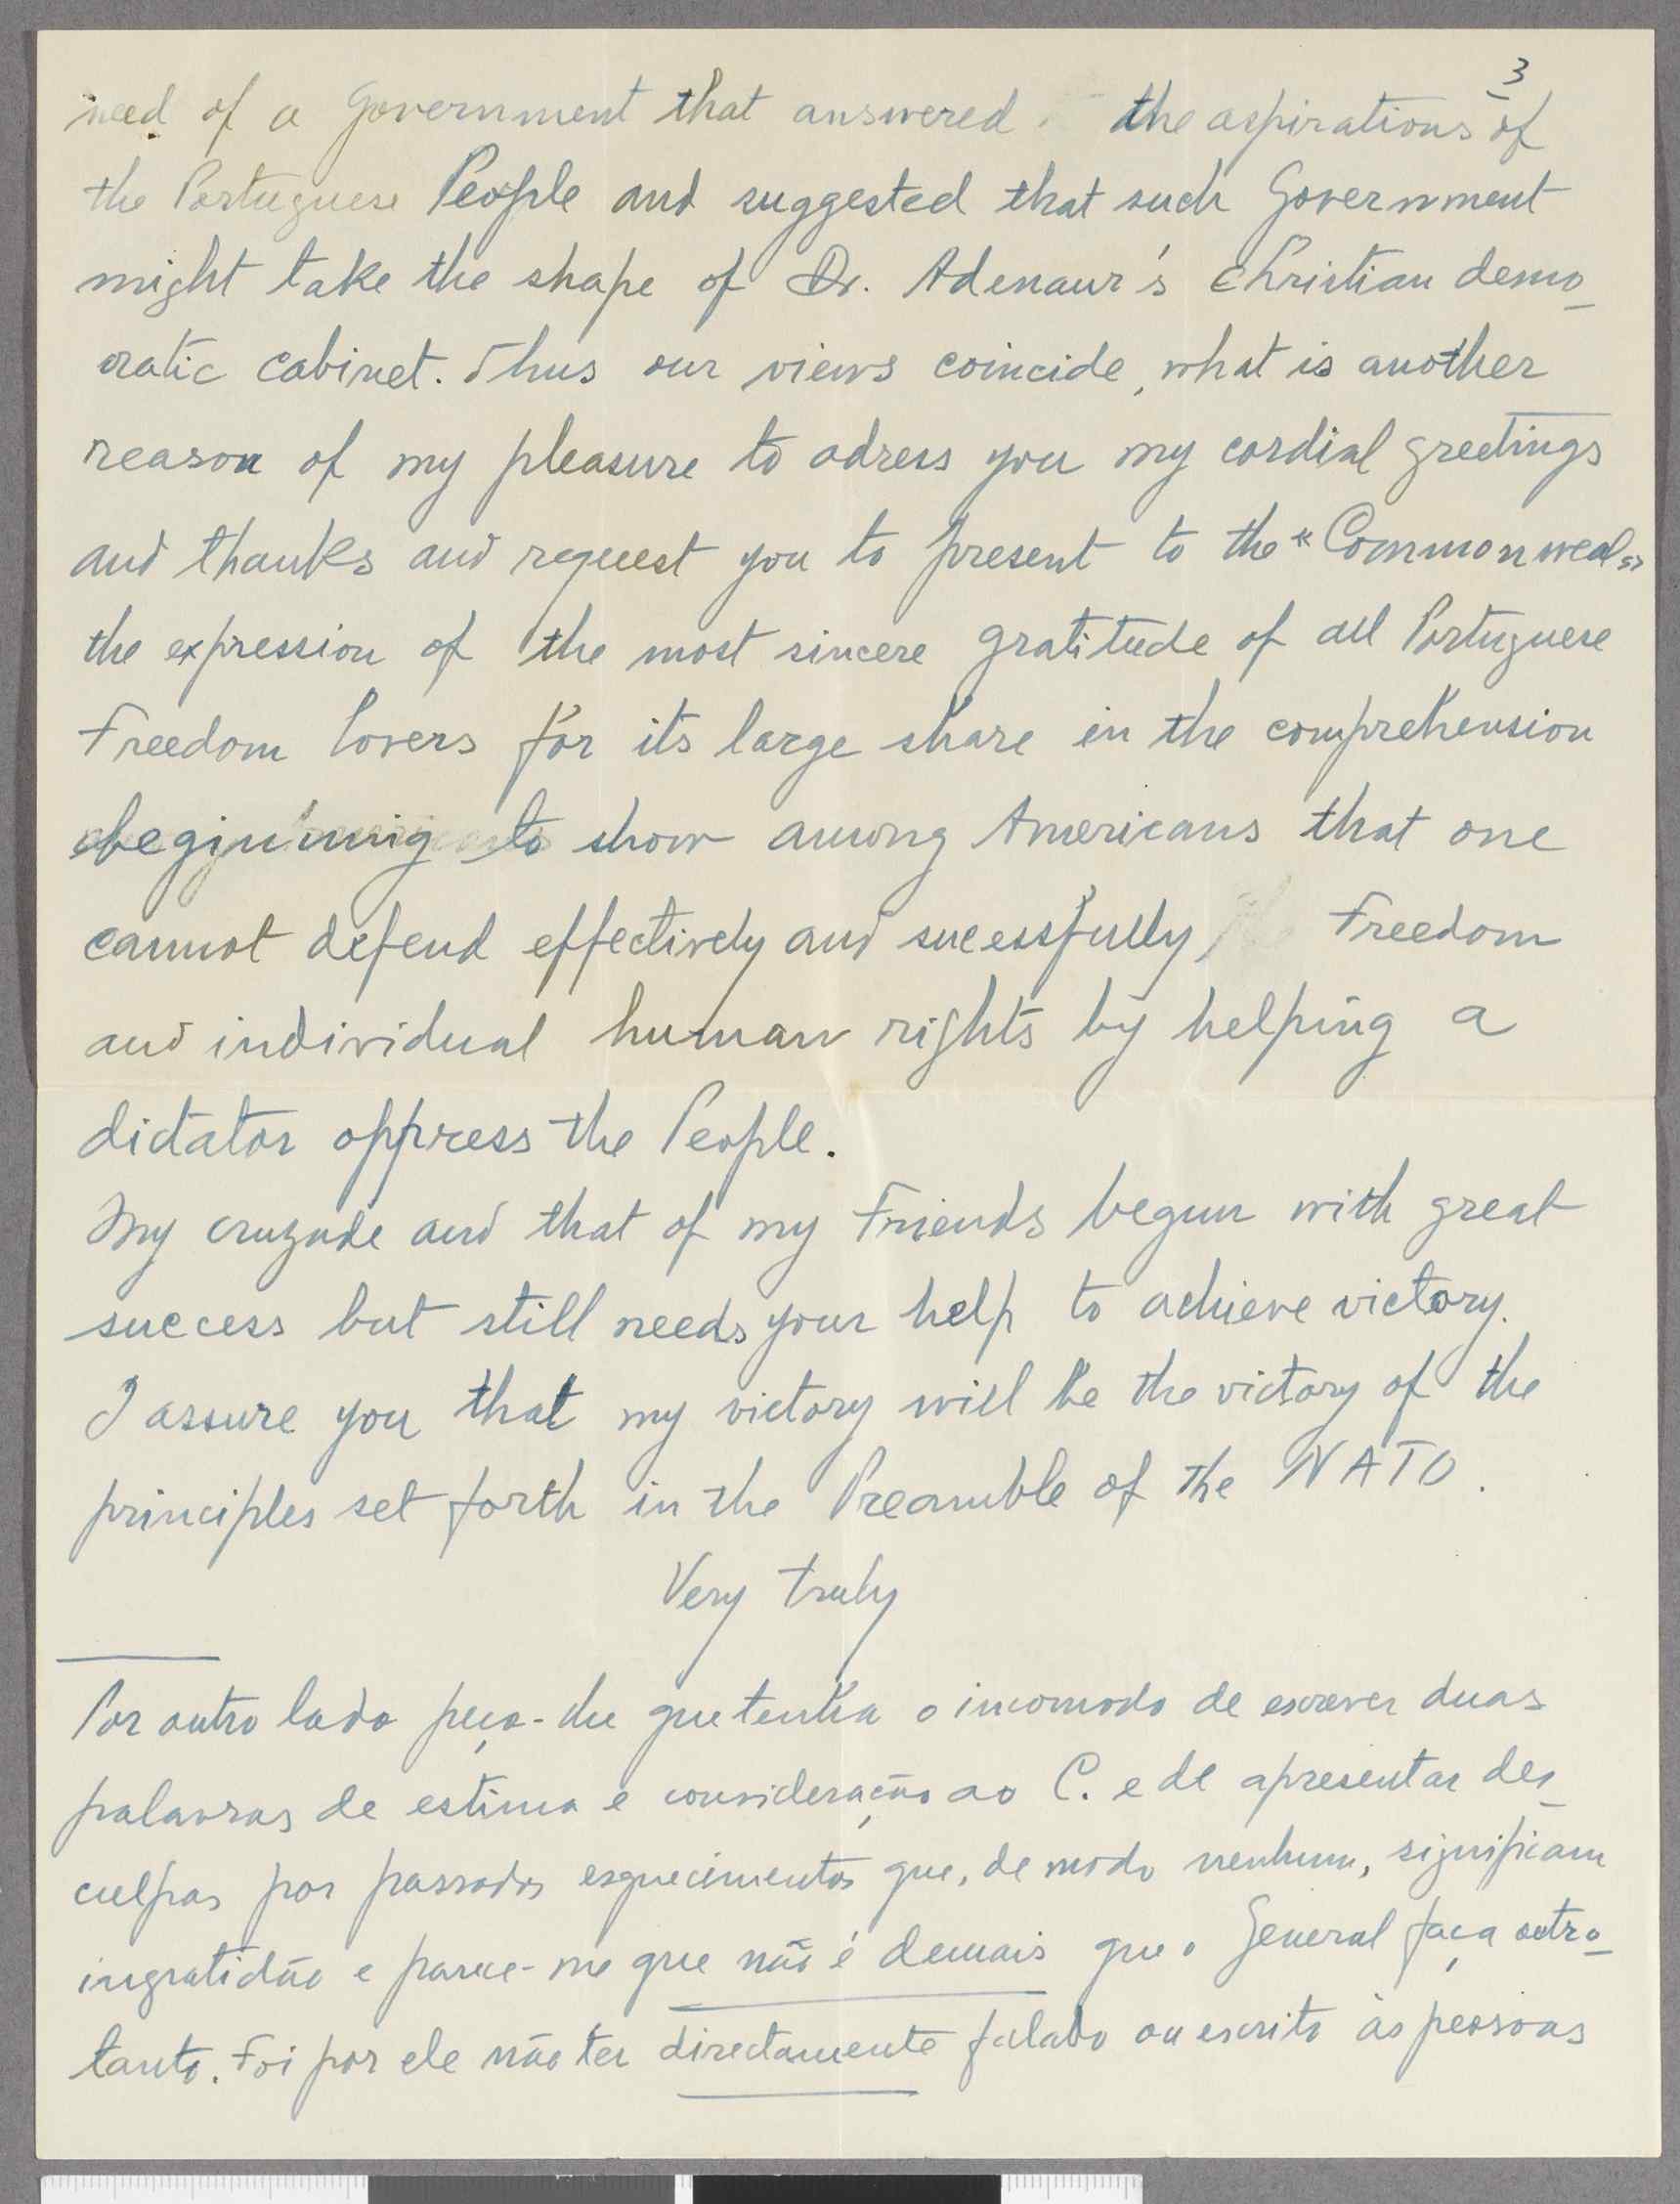 3
need of a Government that answered the aspirations of
the Portuguese People and suggested that such Government
might take the shape of Dr. Adenaur's Christian demo-
cratic cabinet. Thus our views coincide, what is another
reason of my pleasure to adress you my cordial greetings
and thanks and request you to present to the "Commonweal"
the expression of the most sincere gratitude of all Portuguese
Freedom lovers for its large share in the comprehension
beginnig to show among Americans that one
cannot defend effectively and sucessfully Freedom
and individual human rights by helping a
dictator oppress the People.
My cruzade and that of my Friends begun with great
success but still needs your help to achieve victory.
I assure you that my victory will be the victory of the
principles set forth in the Preamble of the NATO.
Very truly
Por outro lado peço-lhe que tenha o incomodo de escrever duas
palavras de estima e consideração ao C. e de apresentar des-
culpas por passados esquecimentos que, de modo nenhum, significam
ingratidão e parece-me que não é demais que o General faça outro-
tanto. Foi por ele não ter directamente falado ou escrito às pessoas